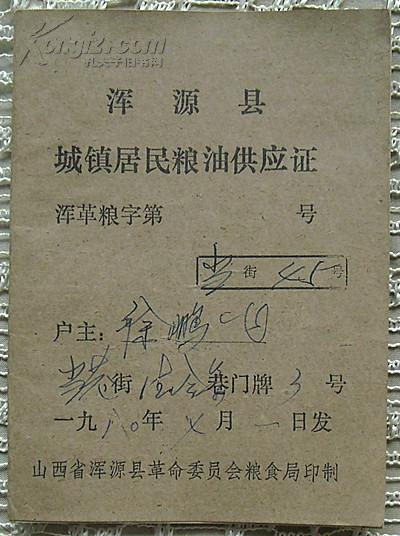 Kongfz.com
孔夫子旧书网
浑源县
城镇居民粮油供应证
浑革粮字第 号
街 45号
户主：徐鹏
街 巷门牌3号
一九八〇年 月一日发
山西省浑源县革命委员会粮食局印制